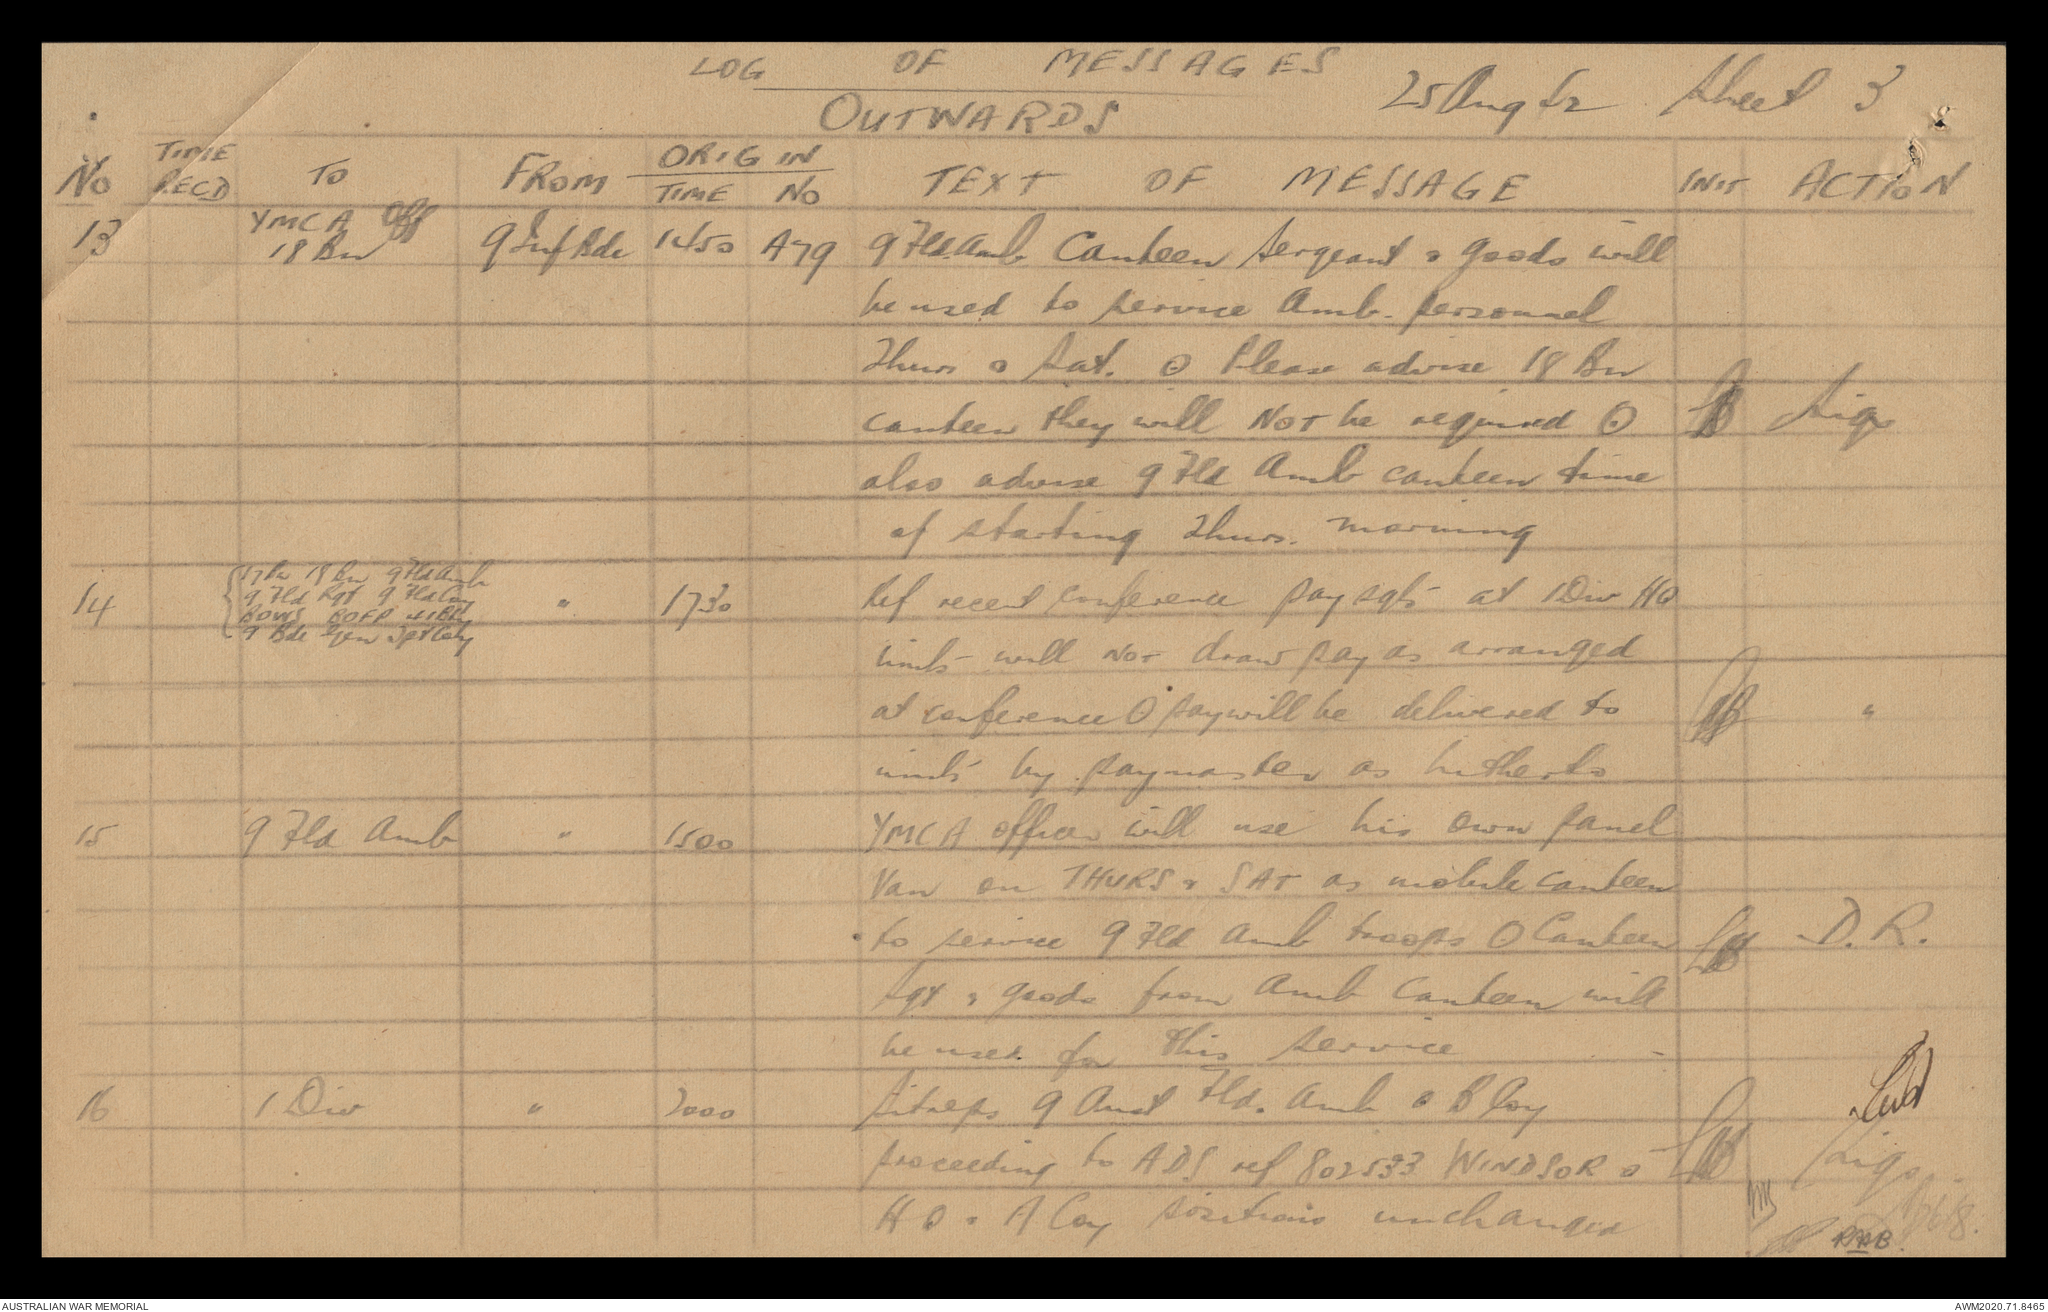 LOG OF MESSAGES
OUTWARDS 25 Aug 52 Sheet 3
No TIME RECD TO FROM ORIGIN TIME No TEXT OF MESSAGE INIT ACTION
13 YMCA Off 18 Bn 9 Inf Bde 1450 A79 9 Fld. Amb Canteen Sergeant & goods will
be used to service Amb. personnel
Thurs & Sat. O Please advise 18 Bn
canteen they will NOT be required O Sigs
also advise 9 Fld Amb canteen time
of starting Thurs. morning
14 17 Bn 18 Bn 9 Fld Amb
9 Fld Rgt 9 Fld Coy
BOWS BOFP 41 Bty
9 Bde Gen Tpt Coy
" 1730 Ref recent conference pay sgts at 1 Div HQ
units will NOT draw pay as arranged
at conference O pay will be delivered to "
units by paymaster as hitherto
15 9 Fld Amb " 1500 YMCA officer will use his own panel
Van on THURS & SAT as mobile canteen
to service 9 Fld Amb troops O Canteen D.R.
Sgt & goods from Amb Canteen will
be used for this service
16 1 Div " 2000 Sitreps 9 Aust Fld. Amb & B Coy
proceeding to ADS ref 802533 WINDSOR & Sigs
HQ & A Coy positions unchanged
RAAB.
AUSTRALIAN WAR MEMORIAL
AWM2020.71.8465